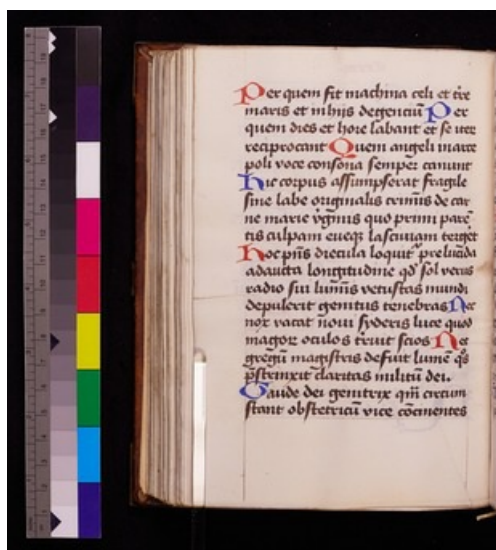 Per quem fit machina celi et tr̄e
maris et in hijs degenciū Per
quem dies et hore labant et se iter
reciprocant Quem angeli in arce
poli voce consona semper canunt
hic corpus assumpserat fragile
sine labe originalis crīmīs de car
ne marie v̄gīnis quo primi parē
tis culpam eueqꝫ lasciuiam terget
hoc p̄n̄s diecula loquit᷑ prelucida
adaucta longitudine qd̄ sol verus
radio sui lumīs vetustas mundi
depulerit genitus tenebras Nec
nox vacat noui syderis luce quod
magoꝝ oculos tiruit scios Nec
gregū magistris defuit lumē q̄s
p̄strinxit claritas militū dei.
Gaude dei genitrix qm̄ circum
stant obstetricū vice cōcinentes